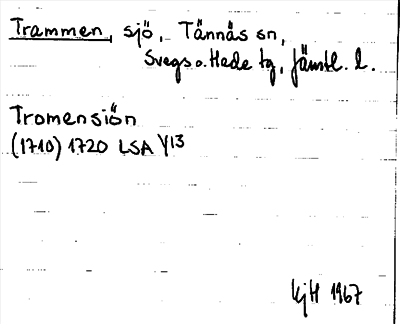 Trammen, sjö, Tännäs sn,
Svegs o. Hede tg, Jämtl. l.
Tromensiön
(1710) 1720 LSA Y13
KjH 1967